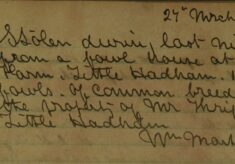 27th March
Stolen during last ni
from a fowl house at
Farm. Little Hadham.
fowls. of common breed
the property of Mr
Little Hadham
Wm